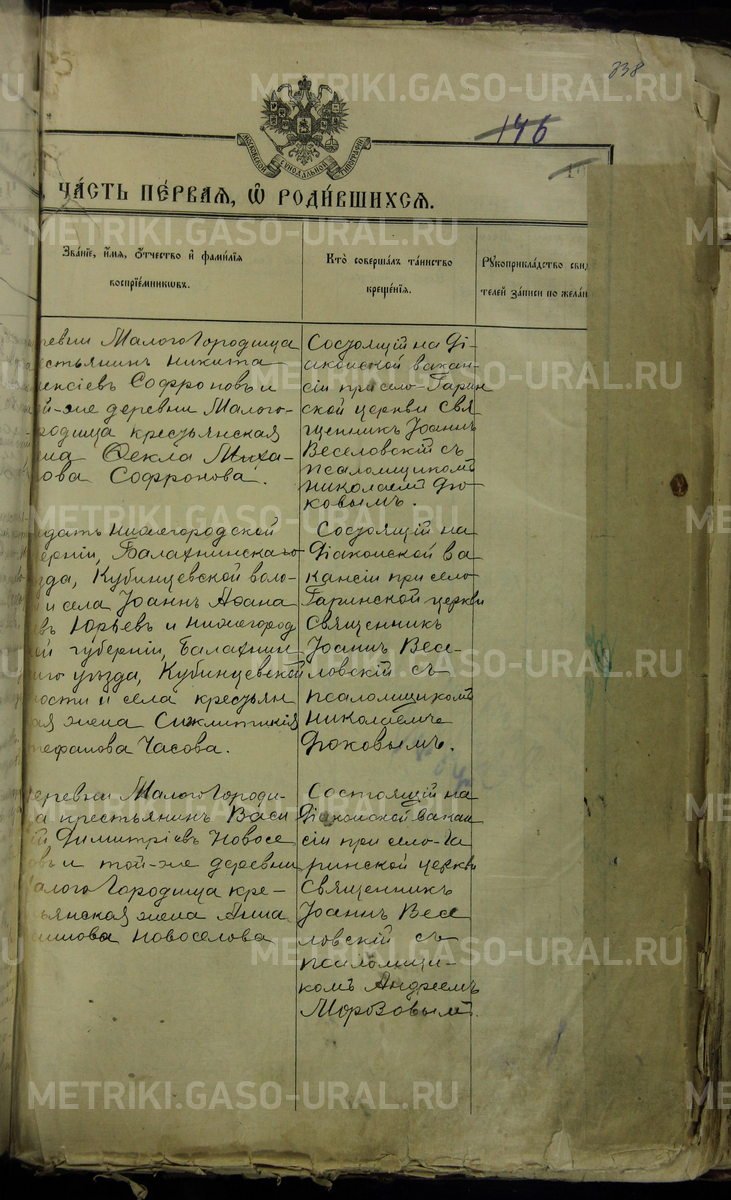 238
146
МОСКОВСКОЙ СѴНОДАЛЬНОЙ ТИПОГРАФІИ
ЧА́СТЬ ПЕ́РВАѦ, Ѽ РОДИ́ВШИХСѦ.
Зва́нїе, и́мѧ, ѻ҆́тчество и҆ фами́лїѧ
воспрїе́мникѡвъ.
Кто̀ соверша́лъ та́инство
креще́нїѧ.
Рꙋкоприкла́дство свид
телей за́писи по жела́н
еревни Малого Городища
естьянинъ Никита
лексіевъ Софроновъ и
ой-же деревни Малого-
родища крестьянская
ена Ѳекла Миха-
лова Софронова.
Состоящій на Ді-
аконской вакан-
сіи при село-Гарин
ской церкви Свя
щенникъ Іоаннъ
Веселовскій съ
псаломщикомъ
Николаемъ Дю-
ковымъ.
лдатъ Нижегородской
берніи, Балахнинскаго
зда, Кубинцевской воло-
и и села Іоаннъ Аѳана
евъ Юрьевъ и Нижегород
ой губерніи, Балахнин
аго уѣзда, Кубинцевской
лости и села крестьян
ая жена
тефанова Часова.
Состоящій на
Діаконской ва
кансіи при село
Гаринской церкви
Священникъ
Іоаннъ Весе-
ловскій съ
псаломщикомъ
Дюковымъ.
деревни Малого Городи-
а крестьянинъ Васи
ій Димитріевъ Новосе
овъ и той-же деревни
алого Городища кре-
тьянская жена Анна
Новоселова
Состоящій на
Діаконской вакан
сіи при село-Га
ринской церкви
Священникъ
Іоаннъ Весе
ловскій съ
псаломщи-
комъ Андреемъ
Морозовымъ.
METRIKI.GASO-URAL.RU